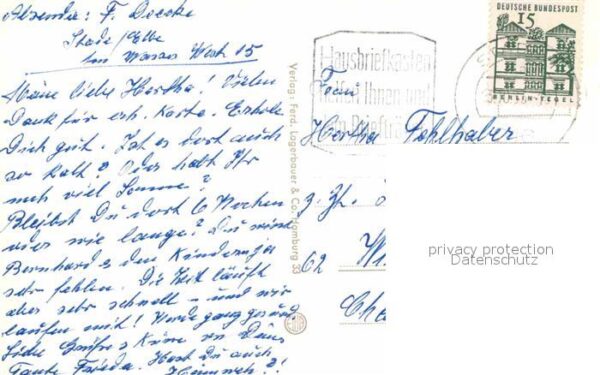 Absender: F. Doescke
Stade/Elbe
bei Wasser West 15
Meine liebe Hertha! Vielen
Dank für erh. Karte. Erhole
Dich gut. Ist es dort auch
so kalt? Oder habt Ihr
noch viel Sonne?
Bleibst Du dort 6 Wochen
oder wie lange? Du wirst
Bernhard u. den Kindern ja
sehr fehlen. Die Zeit läuft
aber sehr schnell - und wir
laufen mit! Werde ganz gesund
Liebe Grüße u. Küsse von Deiner
Tante Frieda. Hast Du auch
Heimweh?!
Verlag: Ferd. Lagerbauer & Co. Hamburg 33
Hausbriefkasten
Ihnen und
DEUTSCHE BUNDESPOST
15
BERLIN-TEGEL
Frau
Hertha Fehlhaber
z. Zt.
62 Wi
privacy protection
Datenschutz